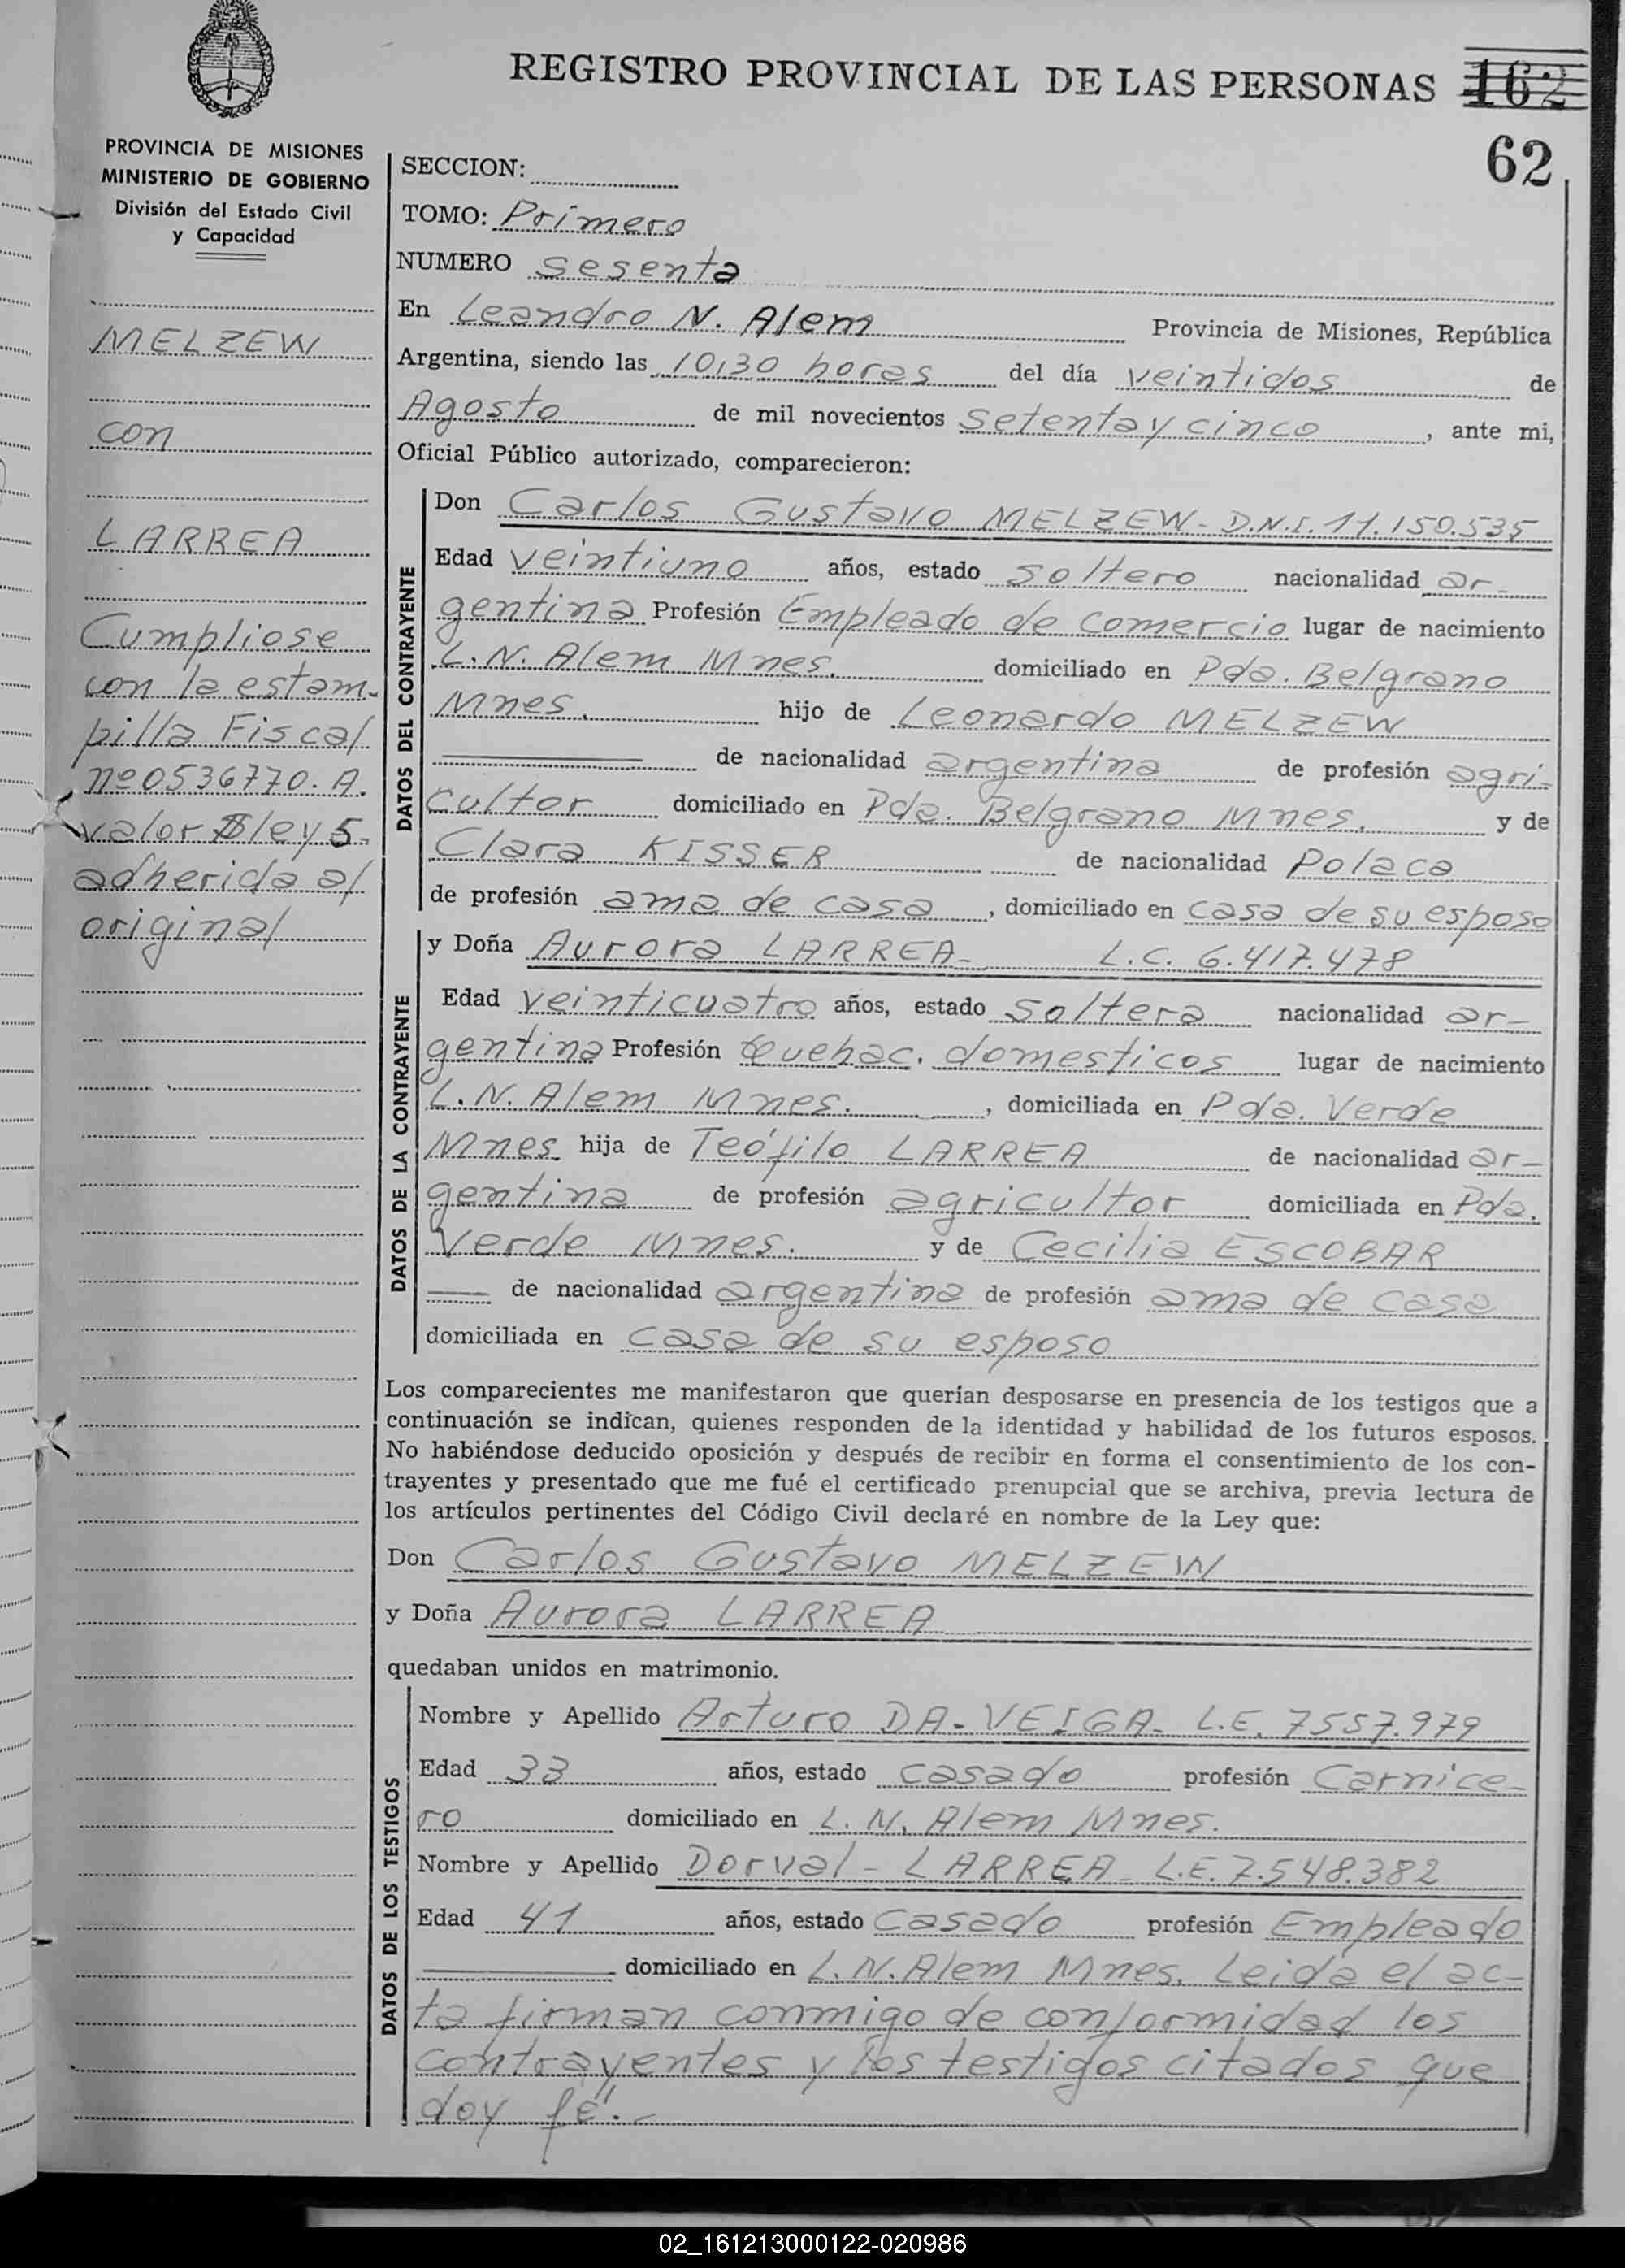 REGISTRO PROVINCIAL DE LAS PERSONAS 162
62
PROVINCIA DE MISIONES
MINISTERIO DE GOBIERNO
División del Estado Civil
y Capacidad
MELZEW
con
LARREA
Cumpliose
con la estam-
pilla Fiscal
nº 0536770. A.
valor $ ley 5-
adherida al
original
SECCION:
TOMO: Primero
NUMERO sesenta
En Leandro N. Alem Provincia de Misiones, República
Argentina, siendo las 10,30 horas del día veintidos de
Agosto de mil novecientos setenta y cinco, ante mi,
Oficial Público autorizado, comparecieron:
DATOS DEL CONTRAYENTE
Don Carlos Gustavo MELZEW- D.N.I. 11.150.535
Edad veintiuno años, estado soltero nacionalidad ar-
gentina Profesión Empleado de Comercio lugar de nacimiento
L.N. Alem Mnes. domiciliado en Pda. Belgrano
Mnes. hijo de Leonardo MELZEW
de nacionalidad argentina de profesión agri-
cultor domiciliado en Pda. Belgrano Mnes. y de
Clara KISSER de nacionalidad Polaca
de profesión ama de casa, domiciliado en casa de su esposo
DATOS DE LA CONTRAYENTE
y Doña Aurora LARREA- L.C. 6.417.478
Edad veinticuatro años, estado soltera nacionalidad ar-
gentina Profesión Quehac. domesticos lugar de nacimiento
L.N. Alem Mnes., domiciliada en Pda. Verde
Mnes. hija de Teófilo LARREA de nacionalidad ar-
gentina de profesión agricultor domiciliada en Pda.
Verde Mnes. y de Cecilia ESCOBAR
de nacionalidad argentina de profesión ama de casa
domiciliada en casa de su esposo
Los comparecientes me manifestaron que querían desposarse en presencia de los testigos que a
continuación se indican, quienes responden de la identidad y habilidad de los futuros esposos.
No habiéndose deducido oposición y después de recibir en forma el consentimiento de los con-
trayentes y presentado que me fué el certificado prenupcial que se archiva, previa lectura de
los artículos pertinentes del Código Civil declaré en nombre de la Ley que:
Don Carlos Gustavo MELZEW
y Doña Aurora LARREA
quedaban unidos en matrimonio.
DATOS DE LOS TESTIGOS
Nombre y Apellido Arturo DA-VEIGA- L.E. 7557.979
Edad 33 años, estado casado profesión Carnice-
ro domiciliado en L.N. Alem Mnes.
Nombre y Apellido Dorval- LARREA- L.E. 7.548.382
Edad 41 años, estado Casado profesión Empleado
domiciliado en L.N. Alem Mnes. Leida el ac-
ta firman conmigo de conformidad los
contrayentes y los testigos citados que
doy fé.-
02_161213000122-020986